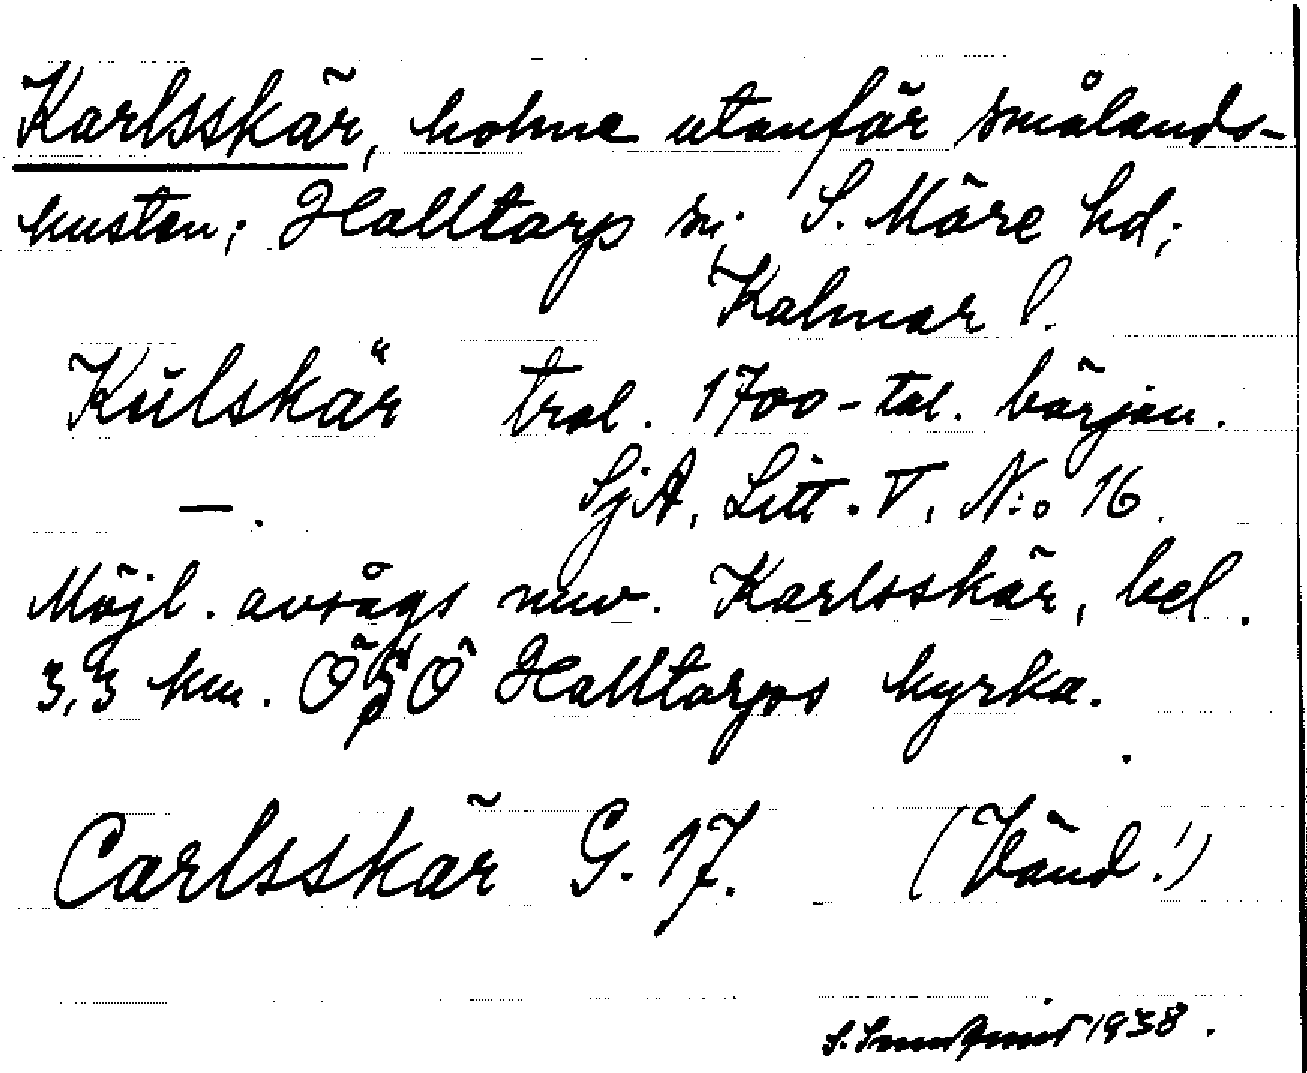 Karlsskär, holme utanför smålands-
kusten; Halltorp sn; S. Möre hd;
Kalmar l.
Külskär trol. 1700-tal. början.
—. SjA, Litt. V, N:o 16.
Möjl. avsågs nuv. Karlsskär, bel.
3,3 km. ÖSÖ Halltorps kyrka.
Carlsskär G. 17. (Vänd!)
S. 1938.